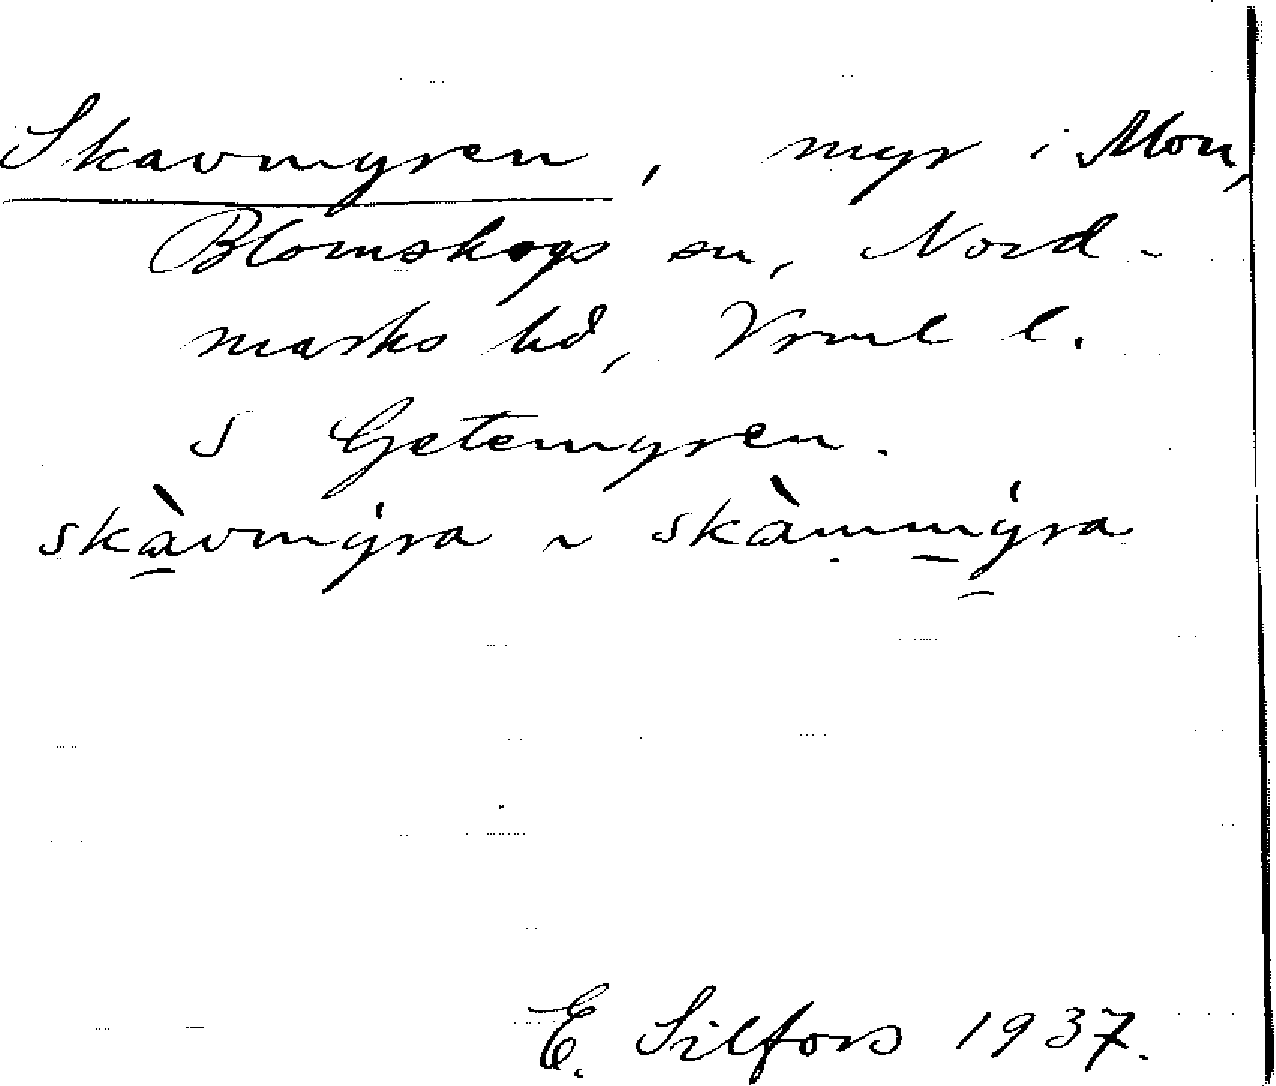 Skavmyren, myr i Mon,
Blomskogs sn, Nord-
marks hd, Vrml l.
S Getemyren.
skàvmýra ~ skàmmýra
E. Silfors 1937.